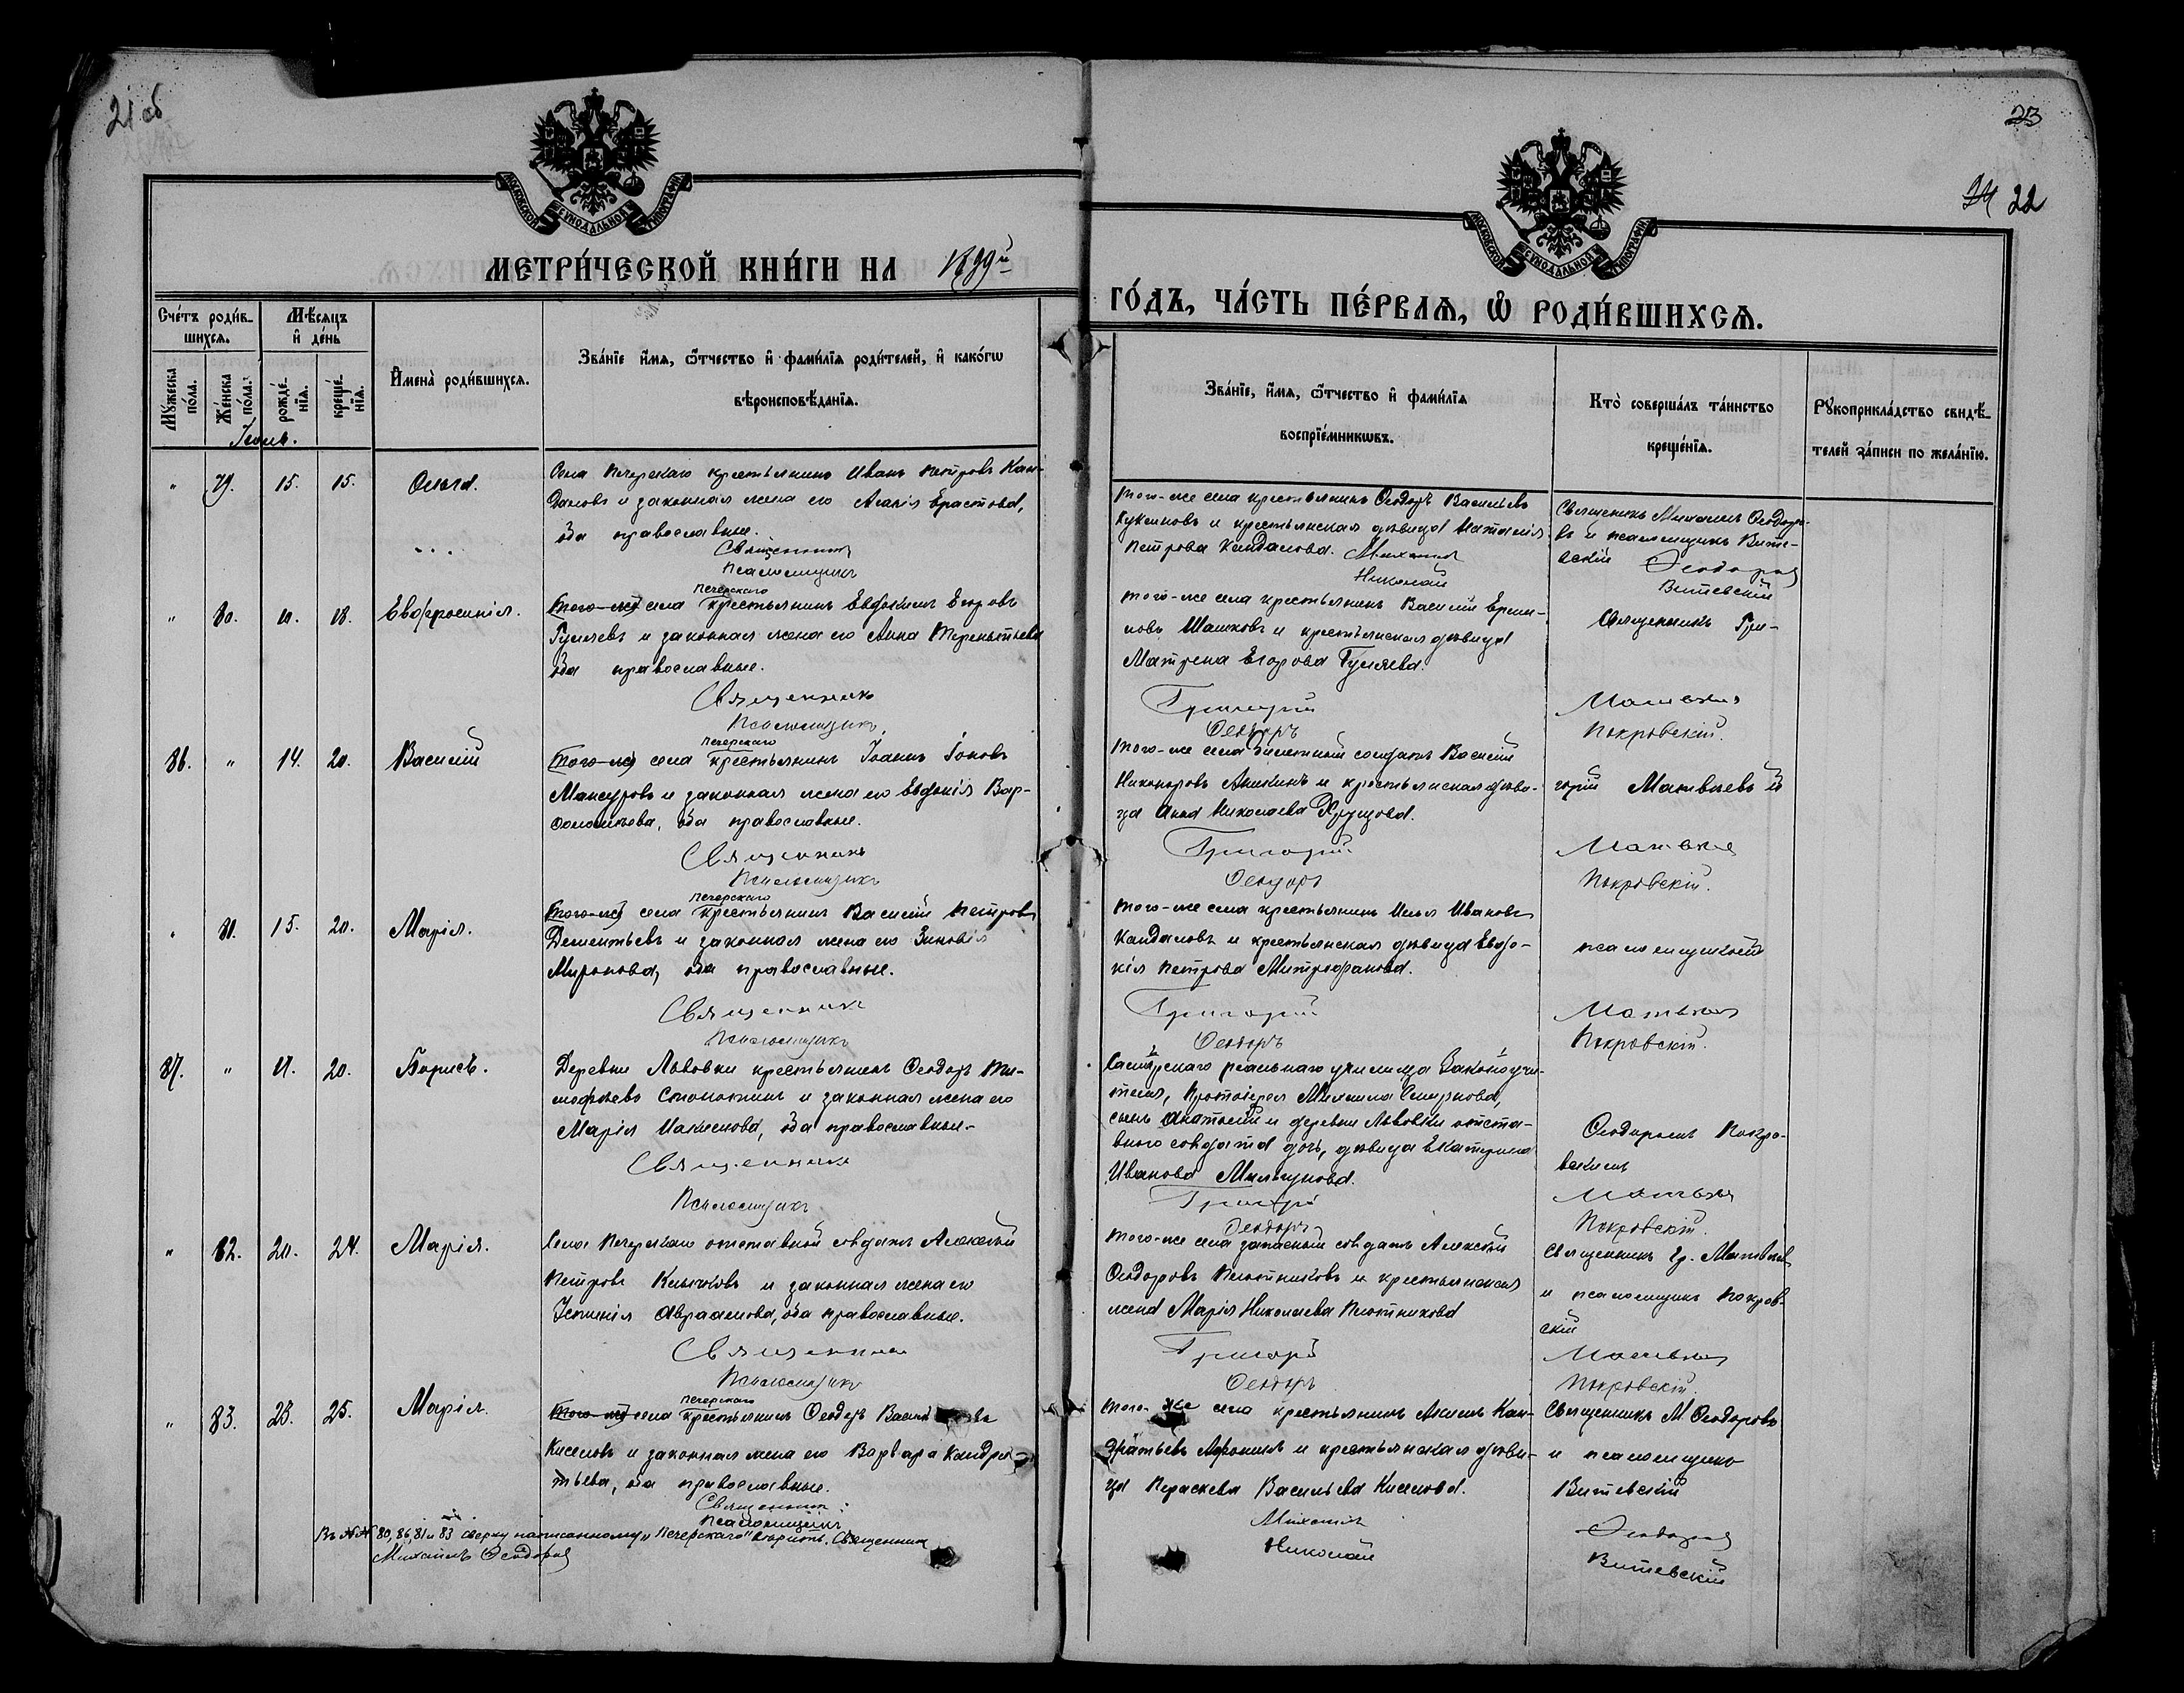 21 об
23
24 22
МОСКОВСКОЙ СѴНОДАЛЬНОЙ ТИПОГРАФІИ.
МОСКОВСКОЙ СѴНОДАЛЬНОЙ ТИПОГРАФІИ.
МЕТРИ́ЧЕСКОЙ КНИ́ГИ НА 1899й
ГО́ДЪ, ЧА́СТЬ ПЕ́РВАѦ, Ѽ РОДИ́ВШИХСѦ.
Сче́тъ роди́в-
шихсѧ.
Мѣ́сѧцъ
и҆ де́нь
Мꙋ́жеска
по́ла.
Же́нска
по́ла.
рожде́-
нїѧ.
креще́-
нїѧ.
И҆мена̀ роди́вшихсѧ.
Зва́нїе и҆́мѧ, ѻ҆́тчество и҆ фами́лїѧ роди́телей, и҆ како́гѡ
вѣроисповѣ́данїѧ.
Зва́нїе, и҆́мѧ, ѻ҆́тчество и҆ фами́лїѧ
воспрїе́мникѡвъ.
Кто̀ соверша́лъ та́инство
креще́нїѧ.
Рꙋкоприкла́дство свидѣ́-
телей за́писи по жела́нїю.
Іюль.
" 79. 15. 15. Ольга.
Села Печерскаго крестьянинъ Иванъ Петровъ Кан-
даловъ и законная жена его Агапія Ерастова,
оба православные.
Священникъ
Псаломщикъ
Того-же села крестьянинъ Ѳеодоръ Васильевъ
Куклиновъ и крестьянская дѣвица Наталія
Петрова Кандалова. Михаилъ
Николай
Священникъ Михаилъ Ѳеодоро-
въ и псаломщикъ Вите-
вскій Ѳеодоровъ
Витевскій
" 80. 18. Евфросинія.
Печерскаго
Того-же села крестьянинъ Евдокимъ Егоровъ
Гуляевъ и законная жена его Анна Терентьева
оба православные.
Священникъ
Псаломщикъ
Того-же села крестьянинъ Василій
Шашковъ и крестьянская дѣвица
Матрена Егорова Гуляева.
Григорій
Ѳеодоръ
Священникъ Гри-
Матвѣевъ
Покровскій.
86. " 14. 20. Василій
Печерскаго
Того-же села крестьянинъ Іоаннъ Іоновъ
Мансуровъ и законная жена его Евдокія Вар-
ѳоломѣева, оба православные.
Священникъ
Псаломщикъ
Того-же села билетный солдатъ Василій
Никаноровъ Аникинъ и крестьянская дѣви-
ца Анна Николаева Хрущова.
Григорій
Ѳеодоръ
горій Матвѣевъ и
Матвѣевъ
Покровскій.
" 81. 15. 20. Марія.
Печерскаго
Того-же села крестьянинъ Василій Петровъ
Дементьевъ и законная жена его Зиновія
Миронова, оба православные.
Священникъ
Псаломщикъ
Того-же села крестьянинъ Илья Ивановъ
Кандаловъ и крестьянская дѣвица Евдо-
кія Петрова Митрофанова.
Григорій
Ѳеодоръ
псаломщикомъ
Матвѣевъ
Покровскій.
87. " 20. Борисъ.
Деревни Львовки крестьянинъ Ѳеодоръ Ти-
моѳѣевъ и законная жена его
Марія оба православные.
Священникъ
Псаломщикъ
реальнаго училища Законоучи-
теля, Протоіерея Михаила Смирнова,
сынъ Анатолій и деревни Львовки отста-
вного солдата дочь, дѣвица Екатерина
Иванова
Григорій
Ѳеодоръ
Ѳеодоромъ Покро-
вскимъ
Матвѣевъ
Покровскій.
" 82. 20. 24. Марія.
Села Печерскаго отставной солдатъ Алексѣй
Петровъ Клычковъ и законная жена его
Іустинія Авраамова, оба православные.
Священникъ
Псаломщикъ
Того-же села запасный солдатъ Алексѣй
Ѳеодоровъ Плотниковъ и крестьянская
жена Марія Николаева Плотникова
Григорій
Ѳеодоръ
Священникъ Гр. Матвѣевъ
и псаломщикъ Покров-
скій
Матвѣевъ
Покровскій.
" 83. 25. Марія.
Печерскаго
Того-же села крестьянинъ Ѳеодоръ
Киселовъ и законная жена его Варвара Кондра-
тьева, оба православные.
Священникъ
Псаломщикъ
Того-же села крестьянинъ Акимъ Кон-
дратьевъ Афонинъ и крестьянская дѣви-
ца Параскева Васильева Киселова.
Михаилъ
Николай
Священникъ М Ѳеодоровъ
и псаломщикъ
Витевскій
Ѳеодоровъ
Витевскій
Въ №№ 80, 86, 81 и 83 сверху написанному „Печерскаго" вѣрить. Священникъ
Михаилъ Ѳеодоровъ